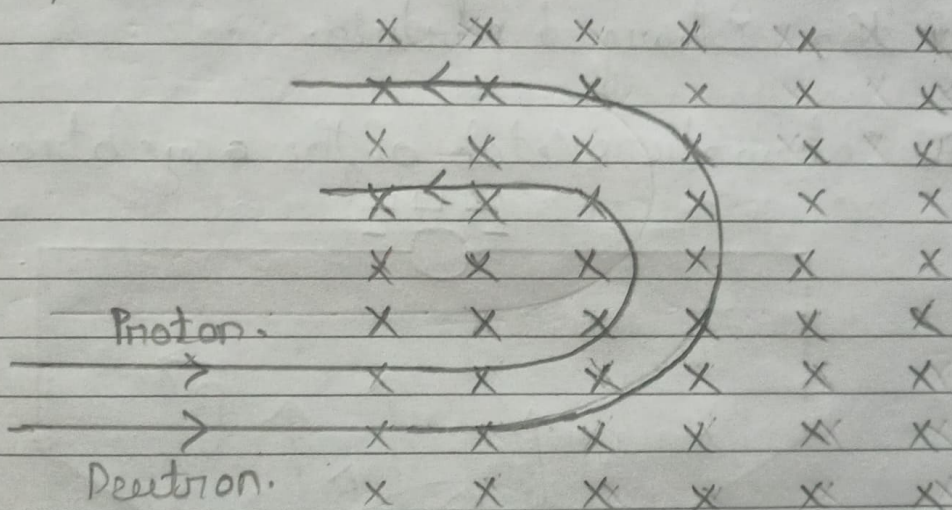 Proton.
Deutron.